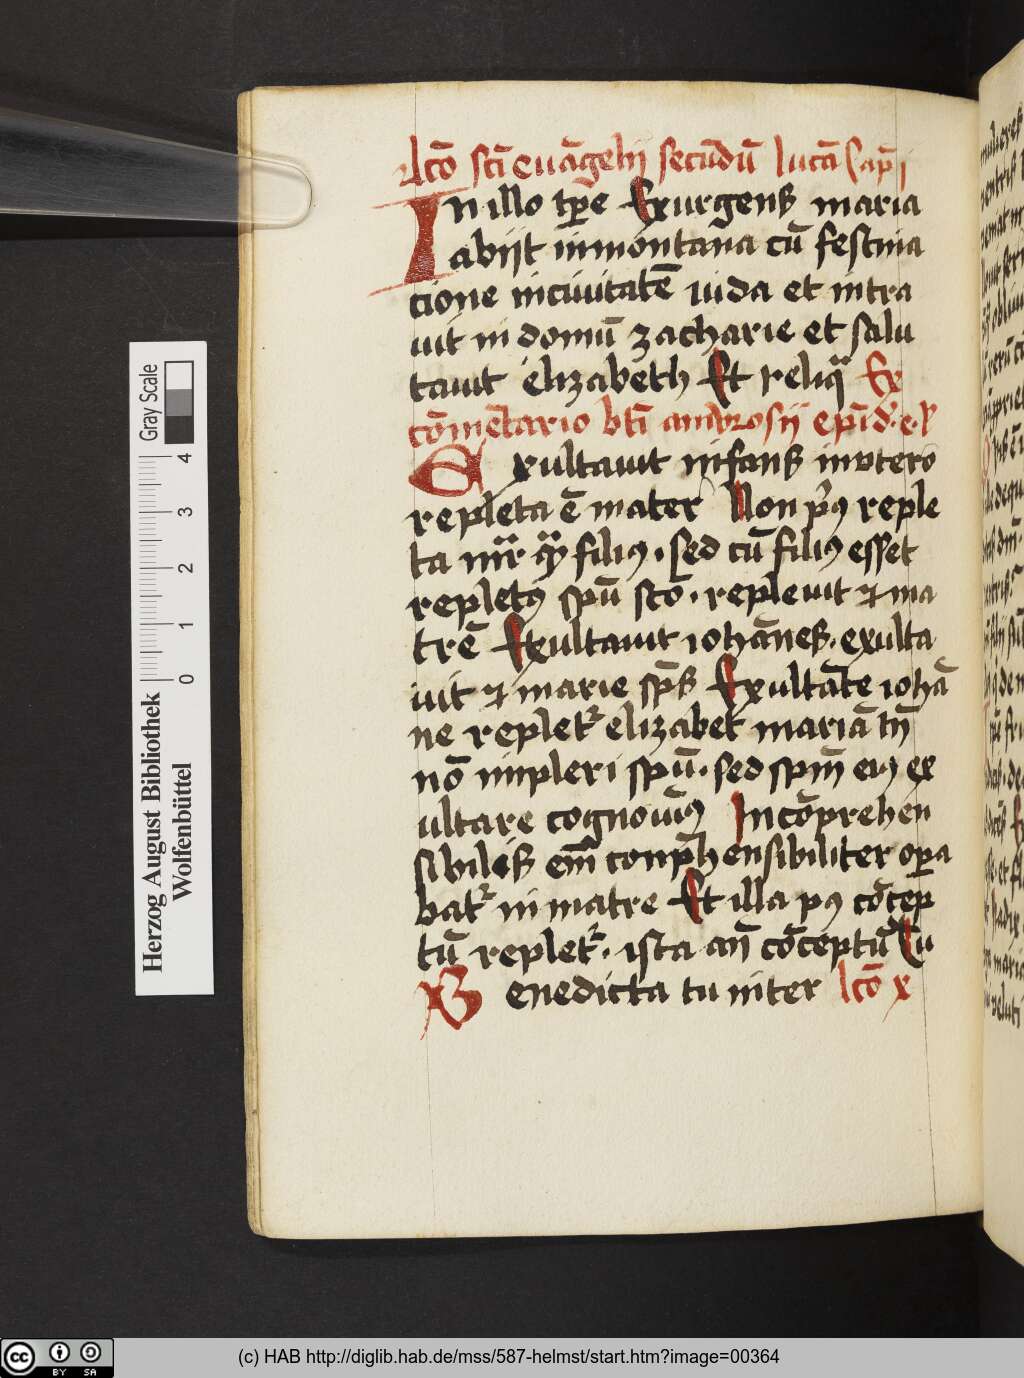 Lcō scī euāgelij secūdū lucā Cap i
In illo tpe Exurgens maria
abijt in montana cū festina
cione in ciuitatē iuda et intra
uit in domū zacharie et salu
tauit elizabeth Et reliqa Ex
cōmētario bti ambrosij epī d. e. l
Exultauit infans in vtero
repleta ē mater Non pꝰ reple
ta mr̄ qm̄ filiꝰ. sed cū filiꝰ esset
repletꝰ spū scō. repleuit ⁊ ma
trē Exultauit iohānes. exulta
uit ⁊ marie sps Exultāte iohā
ne repletr elizabet mariā tn̄
nō impleri spū. sed spm eiꝰ ex
ultare cognouimꝰ Incōprehen
sibilis em conprehensibiliter opera
batr in matre Et illa pꝰ cōcep
tū repletr. ista an̄ cōceptū Tu
Benedicta tu inter Lcō x
Gray Scale
Herzog August Bibliothek
Wolfenbüttel
0 1 2 3 4
(c) HAB http://diglib.hab.de/mss/587-helmst/start.htm?image=00364
cc BY SA